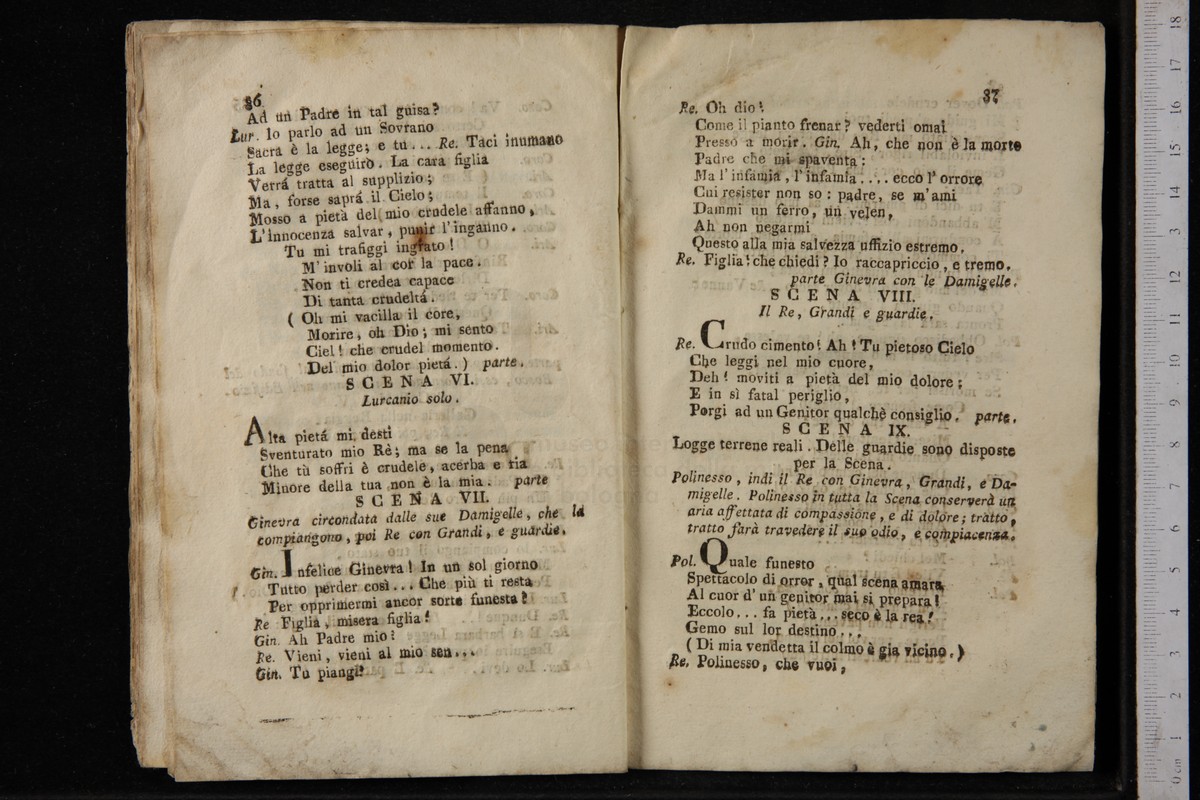 36
Ad un Padre in tal guisa?
Lur. Io parlo ad un Sovrano
Sacra è la legge; e tu... Re. Taci inumano
La legge eseguirò. La cara figlia
Verrá tratta al supplizio;
Ma, forse saprá il Cielo;
Mosso a pietà del mio crudele affanno,
L'innocenza salvar, punir l'inganno.
Tu mi trafiggi ingrato!
M'involi al cor la pace.
Non ti credea capace
Di tanta crudeltá.
( Oh mi vacilla il core,
Morire, oh Dio; mi sento
Ciel! che crudel momento.
Del mio dolor pietá.) parte.
SCENA VI.
Lurcanio solo.
Alta pietá mi desti
Sventurato mio Rè; ma se la pena
Che tù soffri è crudele, acerba e ria
Minore della tua non è la mia. parte
SCENA VII.
Ginevra circondata dalle sue Damigelle, che la
compiangono, poi Re con Grandi, e guardie.
Gin. Infelice Ginevra! In un sol giorno
Tutto perder così... Che più ti resta
Per opprimermi ancor sorte funesta?
Re Figlia, misera figlia!
Gin. Ah Padre mio!
Re. Vieni, vieni al mio sen...
Gin. Tu piangi?
37
Re. Oh dio!
Come il pianto frenar? vederti omai
Presso a morir. Gin. Ah, che non è la morte
Padre che mi spaventa:
Ma l'infamia, l'infamia.... ecco l'orrore
Cui resister non so: padre, se m'ami
Dammi un ferro, un velen,
Ah non negarmi
Questo alla mia salvezza uffizio estremo.
Re. Figlia! che chiedi? Io raccapriccio, e tremo.
parte Ginevra con le Damigelle.
SCENA VIII.
Il Re, Grandi e guardie.
Re. Crudo cimento! Ah! Tu pietoso Cielo
Che leggi nel mio cuore,
Deh! moviti a pietà del mio dolore;
E in sì fatal periglio,
Porgi ad un Genitor qualche consiglio. parte.
SCENA IX.
Logge terrene reali. Delle guardie sono disposte
per la Scena.
Polinesso, indi il Re con Ginevra, Grandi, e Da-
migelle. Polinesso in tutta la Scena conserverà un
aria affettata di compassione, e di dolore; tratto,
tratto farà travedere il suo odio, e compiacenza.
Pol. Quale funesto
Spettacolo di orror, qual scena amara,
Al cuor d'un genitor mai si prepara!
Eccolo... fa pietà... seco è la rea!
Gemo sul lor destino...
( Di mia vendetta il colmo è gia vicino.)
Re. Polinesso, che vuoi,